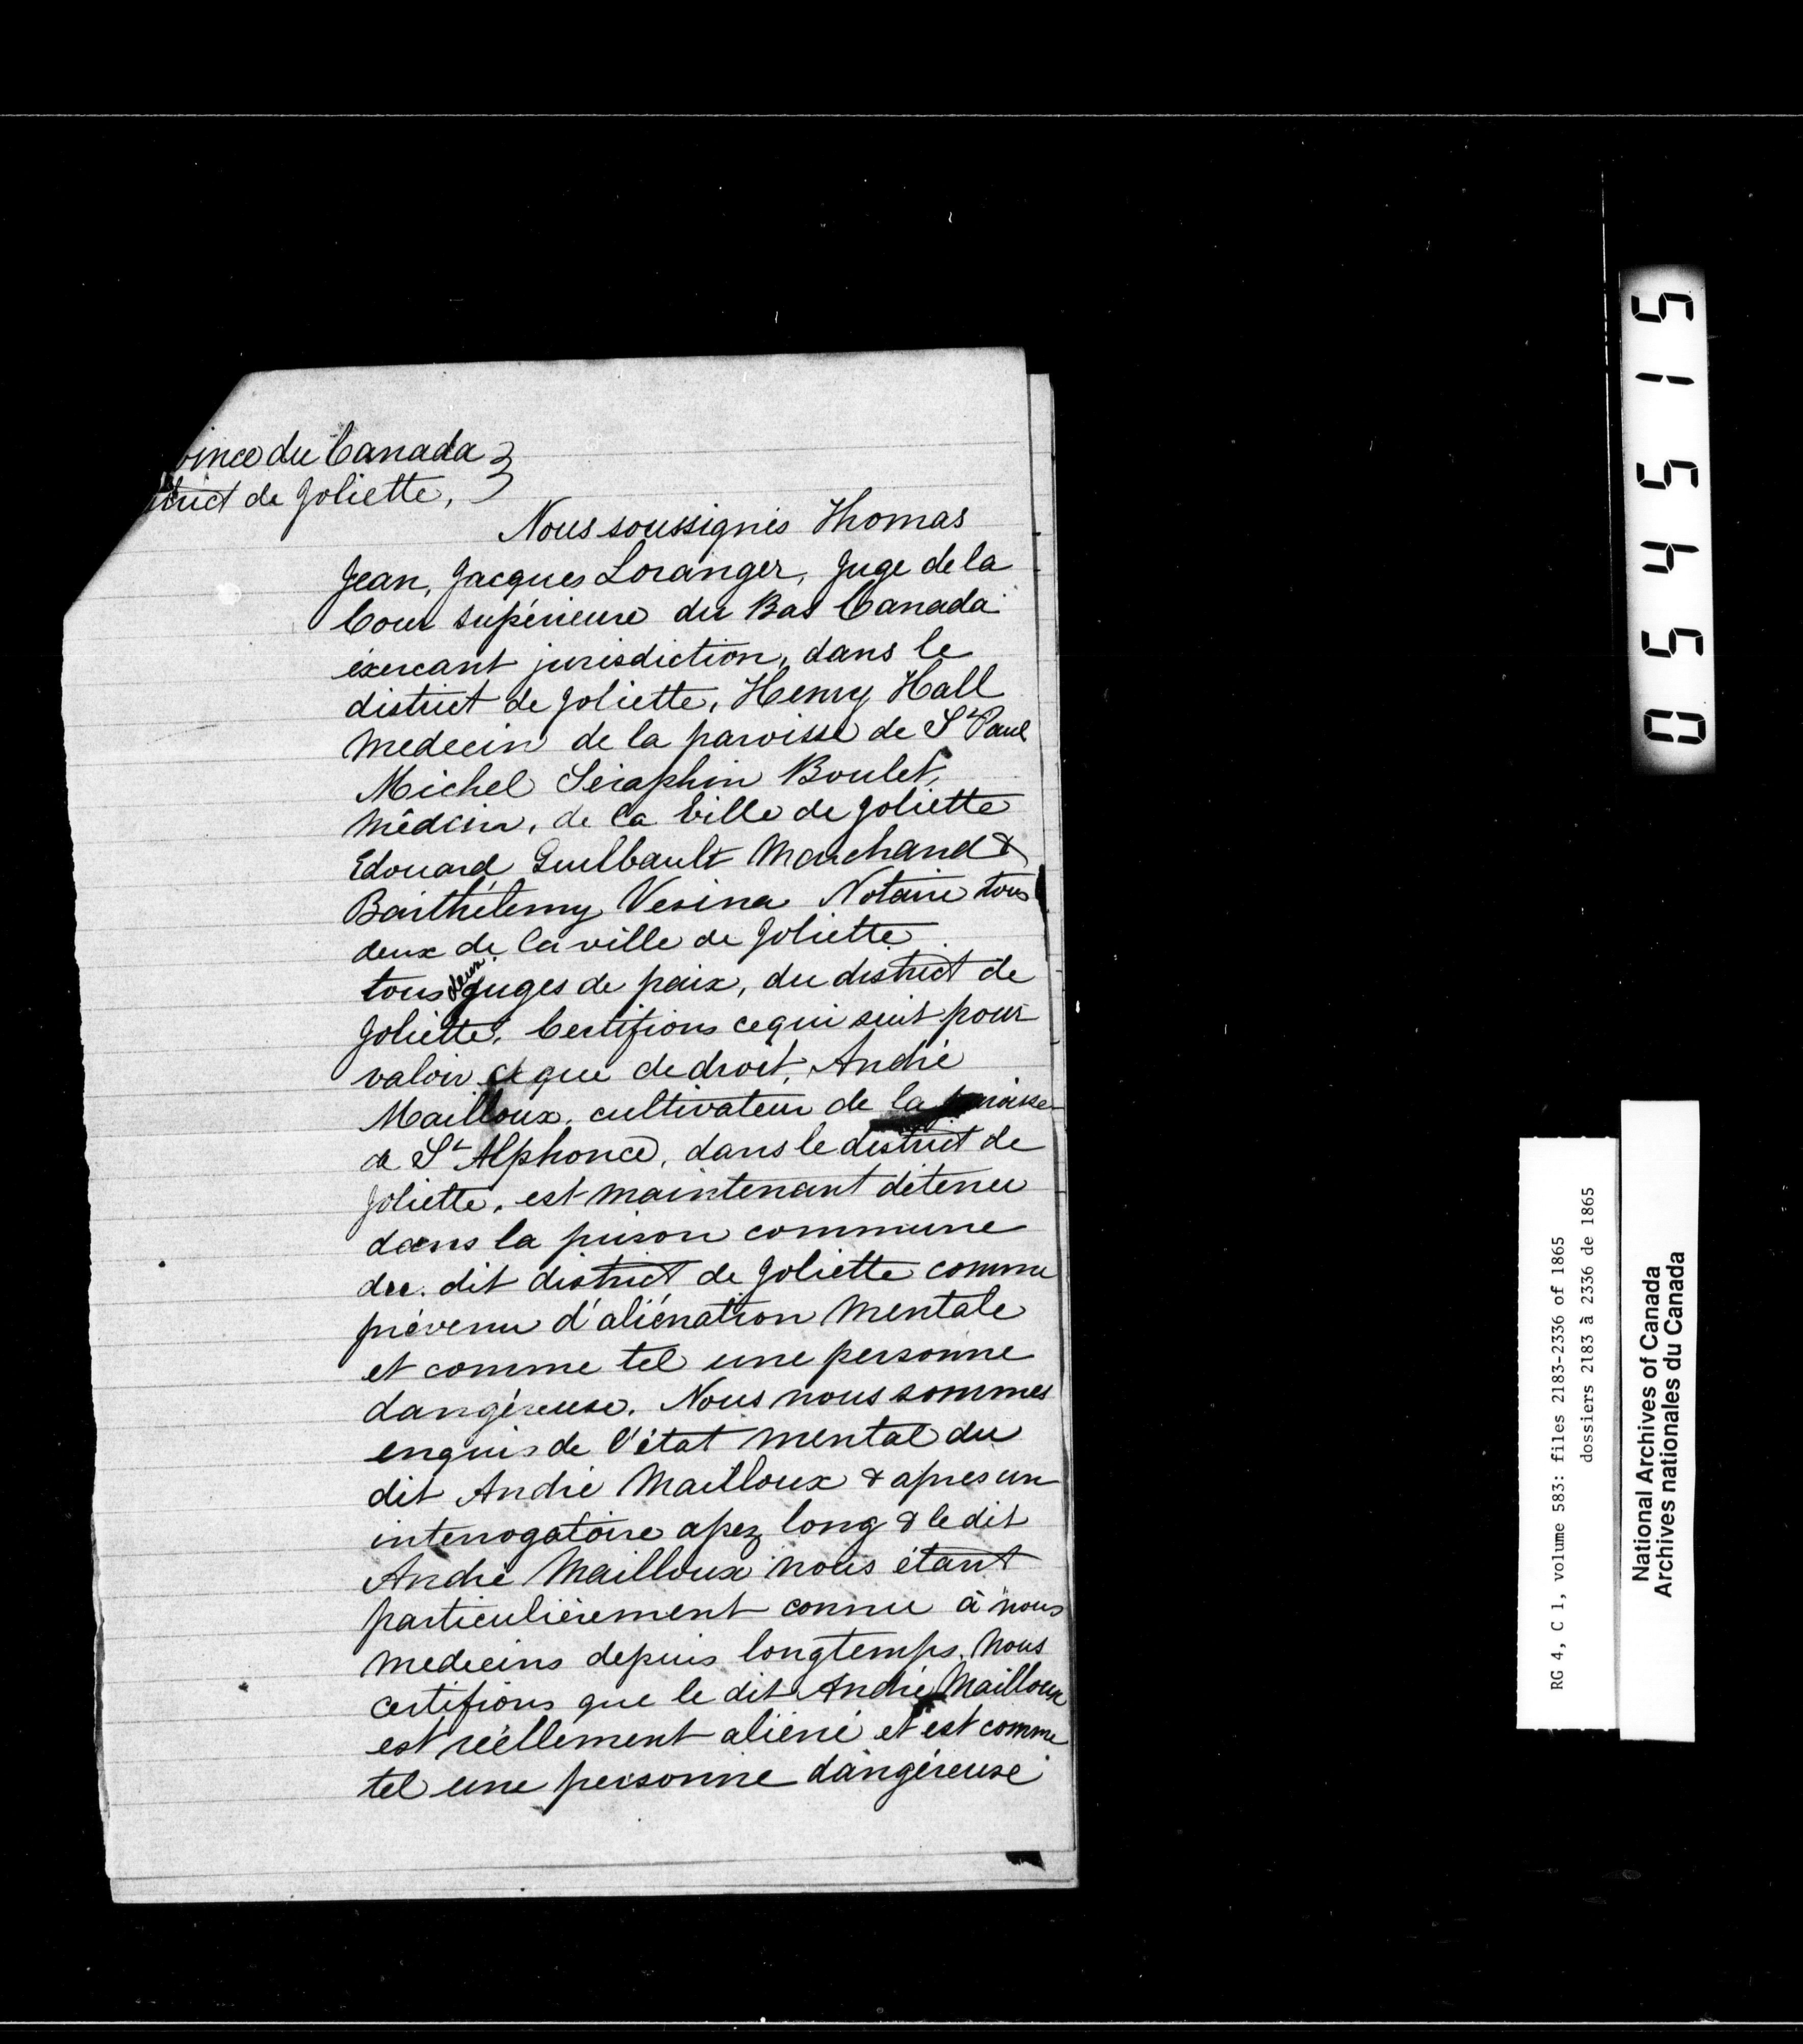 vince du Canada }
strict de Joliette, }
Nous soussignés Thomas
Jean, Jacques Loranger, Juge de la
Cour supérieure du Bas Canada
éxercant jurisdiction, dans le
district de Joliette, Henry Hall
Medecin de la paroisse de St Paul
Michel Séraphin Boulet,
Médcin, de la ville de Joliette
Edouard Guilbault Marchand &
Barthélemy Vesina Notaire tous
deux de la ville de Joliette
tous deux juges de paix, du district de
Joliette, Certifions ce qui suit pour
valoir ce que de droit, André
Mailloux, cultivateur de la paroisse
de St Alphonce, dans le district de
Joliette, est maintenant détenu
dans la prison commune
du dit district de Joliette comme
prévenu d'aliénation Mentale
et comme tel une personne
dangéreuse. Nous nous sommes
enquis de l'état mental du
dit André Mailloux & apres un
interrogatoire assez long & le dit
André Mailloux nous étant
particulièrement connu à nous
Medecins depuis longtemps, Nous
certifions que le dit André Mailloux
est réellement aliéné et est comme
tel une personne dangéreuse
054515
RG 4, C 1, volume 583: files 2183-2336 of 1865
dossiers 2183 à 2336 de 1865
National Archives of Canada
Archives nationales du Canada